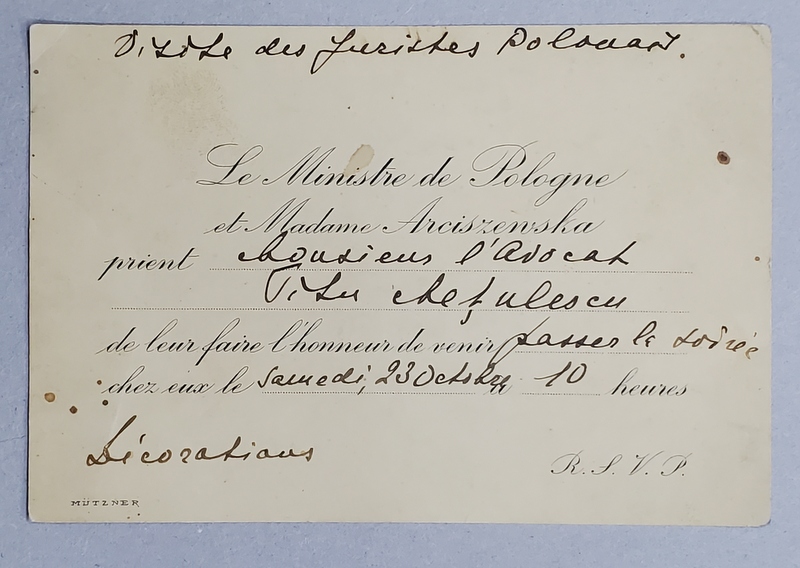 Visite des Juristes Polonais.
Le Ministre de Pologne
et Madame Arciszewska
prient Monsieur l'Avocat
Titu Mețulescu
de leur faire l'honneur de venir passer la soirée
chez eux le samedi, 23 Octobre à 10 heures
Décorations
R. S. V. P.
MÜTZNER